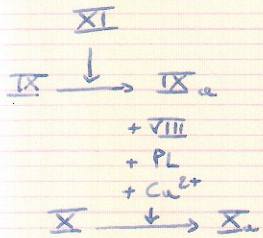 XI
IX → IXa
+ VIII
+ PL
+ Ca2+
X → Xa